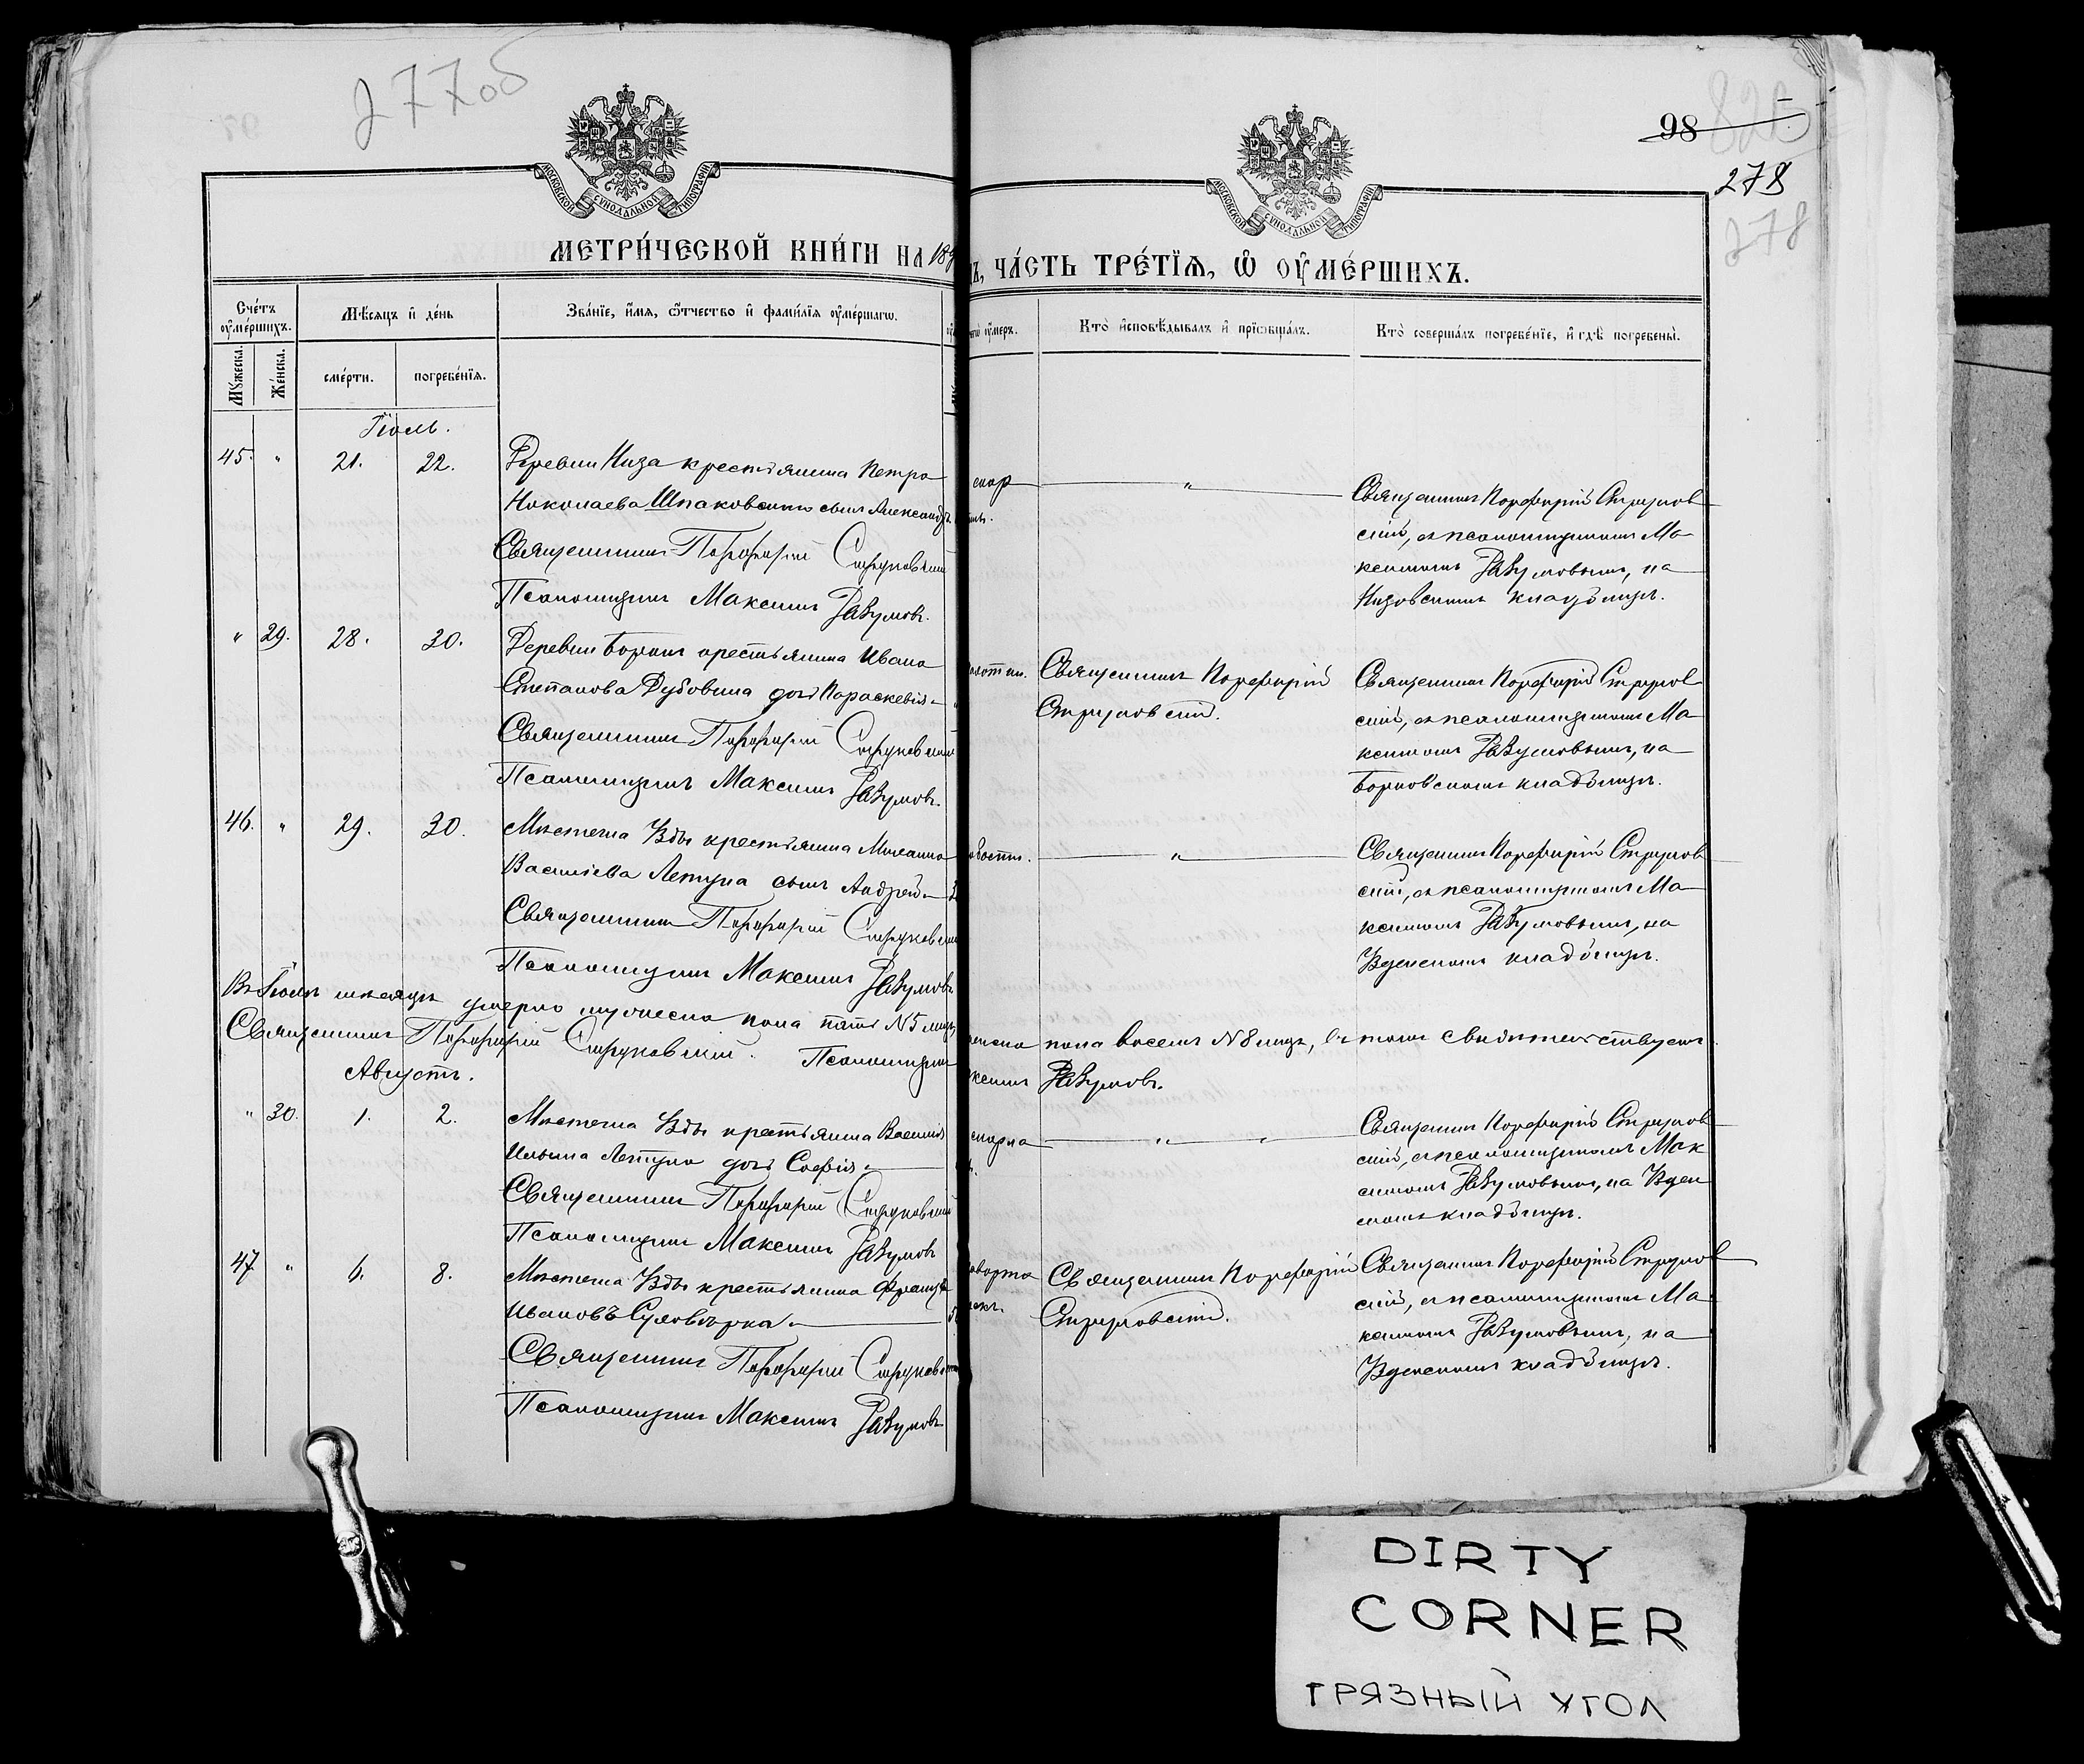 277об
98
278
278
МОСКОВСКОЙ СУНОДАЛЬНОЙ ТИПОГРАФИИ.
МОСКОВСКОЙ СУНОДАЛЬНОЙ ТИПОГРАФИИ.
МЕТРИ́ЧЕСКОЙ КНИ́ГИ НА 189
ЧА́СТЬ ТРЕ́ТЇЯ, Ѡ ОУМЕ́РШИХЪ.
Сче́тъ оуме́ршихъ.
Мѣсяцъ и де́нь
Зва́нїе, и́мя, ѻтчество и фами́лїя оуме́ршагѡ.
оумеръ.
Кто̀ исповѣ́дывалъ и прїѡбща́лъ.
Кто̀ соверша́лъ погребе́нїе, и гдѣ̀ погребены̀.
Му́жеска.
Же́нска.
сме́рти.
погребе́нїя.
Іюль.
45. " 21. 22.
Деревни Низа крестьянина Петра
Николаева Шпаковскаго сынъ Александръ
Священникъ Порфирій Струковскій
Псаломщикъ Максимъ Разумовъ.
"
Священникъ Порфирій Струков
скій, съ псаломщикомъ Ма
ксимомъ Разумовымъ, на
Низовскомъ кладбищѣ.
" 29. 28. 30.
Деревни крестьянина Ивана
Степанова Дубовика дочь Параскевія
Священникъ Порфирій Струковскій
Псаломщикъ Максимъ Разумовъ.
Священникъ Порфирій
Струковскій.
Священникъ Порфирій Струков
скій, съ псаломщикомъ Ма
ксимомъ Разумовымъ, на
кладбищѣ.
46. " 29. 30.
Мѣстечка Узды крестьянина Михаила
Васильева Летуна сынъ Андрей
Священникъ Порфирій Струковскій
Псаломщикъ Максимъ Разумовъ
"
Священникъ Порфирій Струков
скій, съ псаломщикомъ Ма
ксимомъ Разумовымъ, на
Узденскомъ кладбищѣ.
Въ Іюлѣ мѣсяцѣ умерло мужеска пола пять №5 лицъ
пола восемь №8 лицъ, въ томъ свидѣтельствуемъ.
Священникъ Порфирій Струковскій. Псаломщикъ
Разумовъ.
Августъ.
" 30. 1. 2.
Мѣстечка Узды крестьянина Василія
Ильина Летуна дочь Софія
Священникъ Порфирій Струковскій
Псаломщикъ Максимъ Разумовъ
" "
Священникъ Порфирій Струков
скій, съ псаломщикомъ Мак
симомъ Разумовымъ, на Узден
скомъ кладбищѣ.
47 " 6. 8.
Мѣстечка Узды крестьянина
Ивановъ
Священникъ Порфирій Струковскій
Псаломщикъ Максимъ Разумовъ
Священникъ Порфирій
Струковскій.
Священникъ Порфирій Струков
скій, съ псаломщикомъ Ма
ксимомъ Разумовымъ, на
Узденскомъ кладбищѣ.
DIRTY
CORNER
ГРЯЗНЫЙ УГОЛ